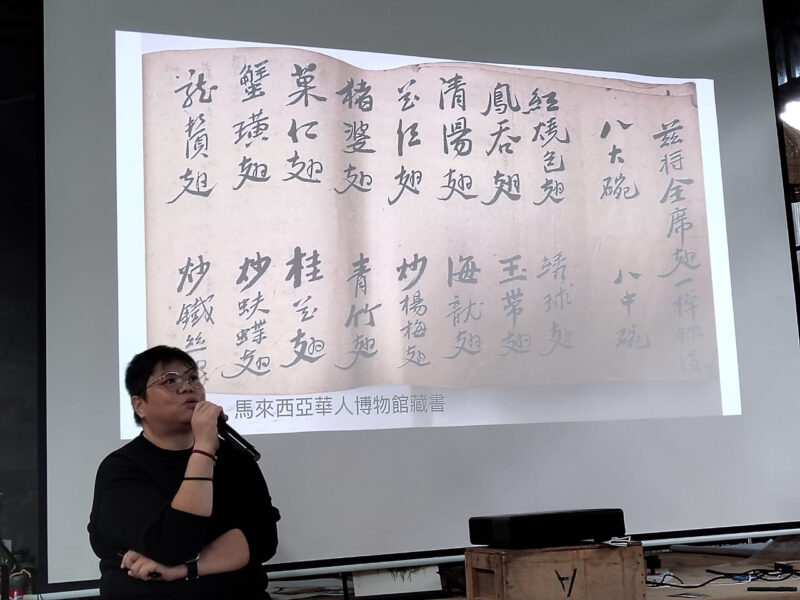 茲將全席翅一棹錄後
八大碗 八中碗
紅燒包翅 綉球翅
鳳吞翅 玉帶翅
清湯翅 海龍翅
花翅 炒楊梅翅
猪婆翅 青竹翅
菓仁翅 桂花翅
蟹璜翅 炒蚨蝶翅
龍翅 炒鐵絲
馬來西亞華人博物館藏書
A